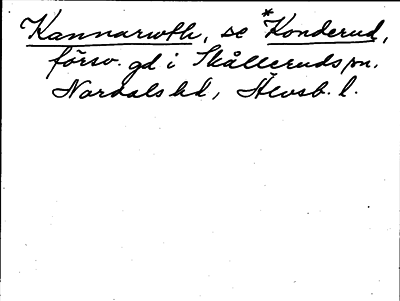 Kannarwth, se *Konderud,
försv. gd i Skållerudssn.
Nordals hd, Älvsb. l.